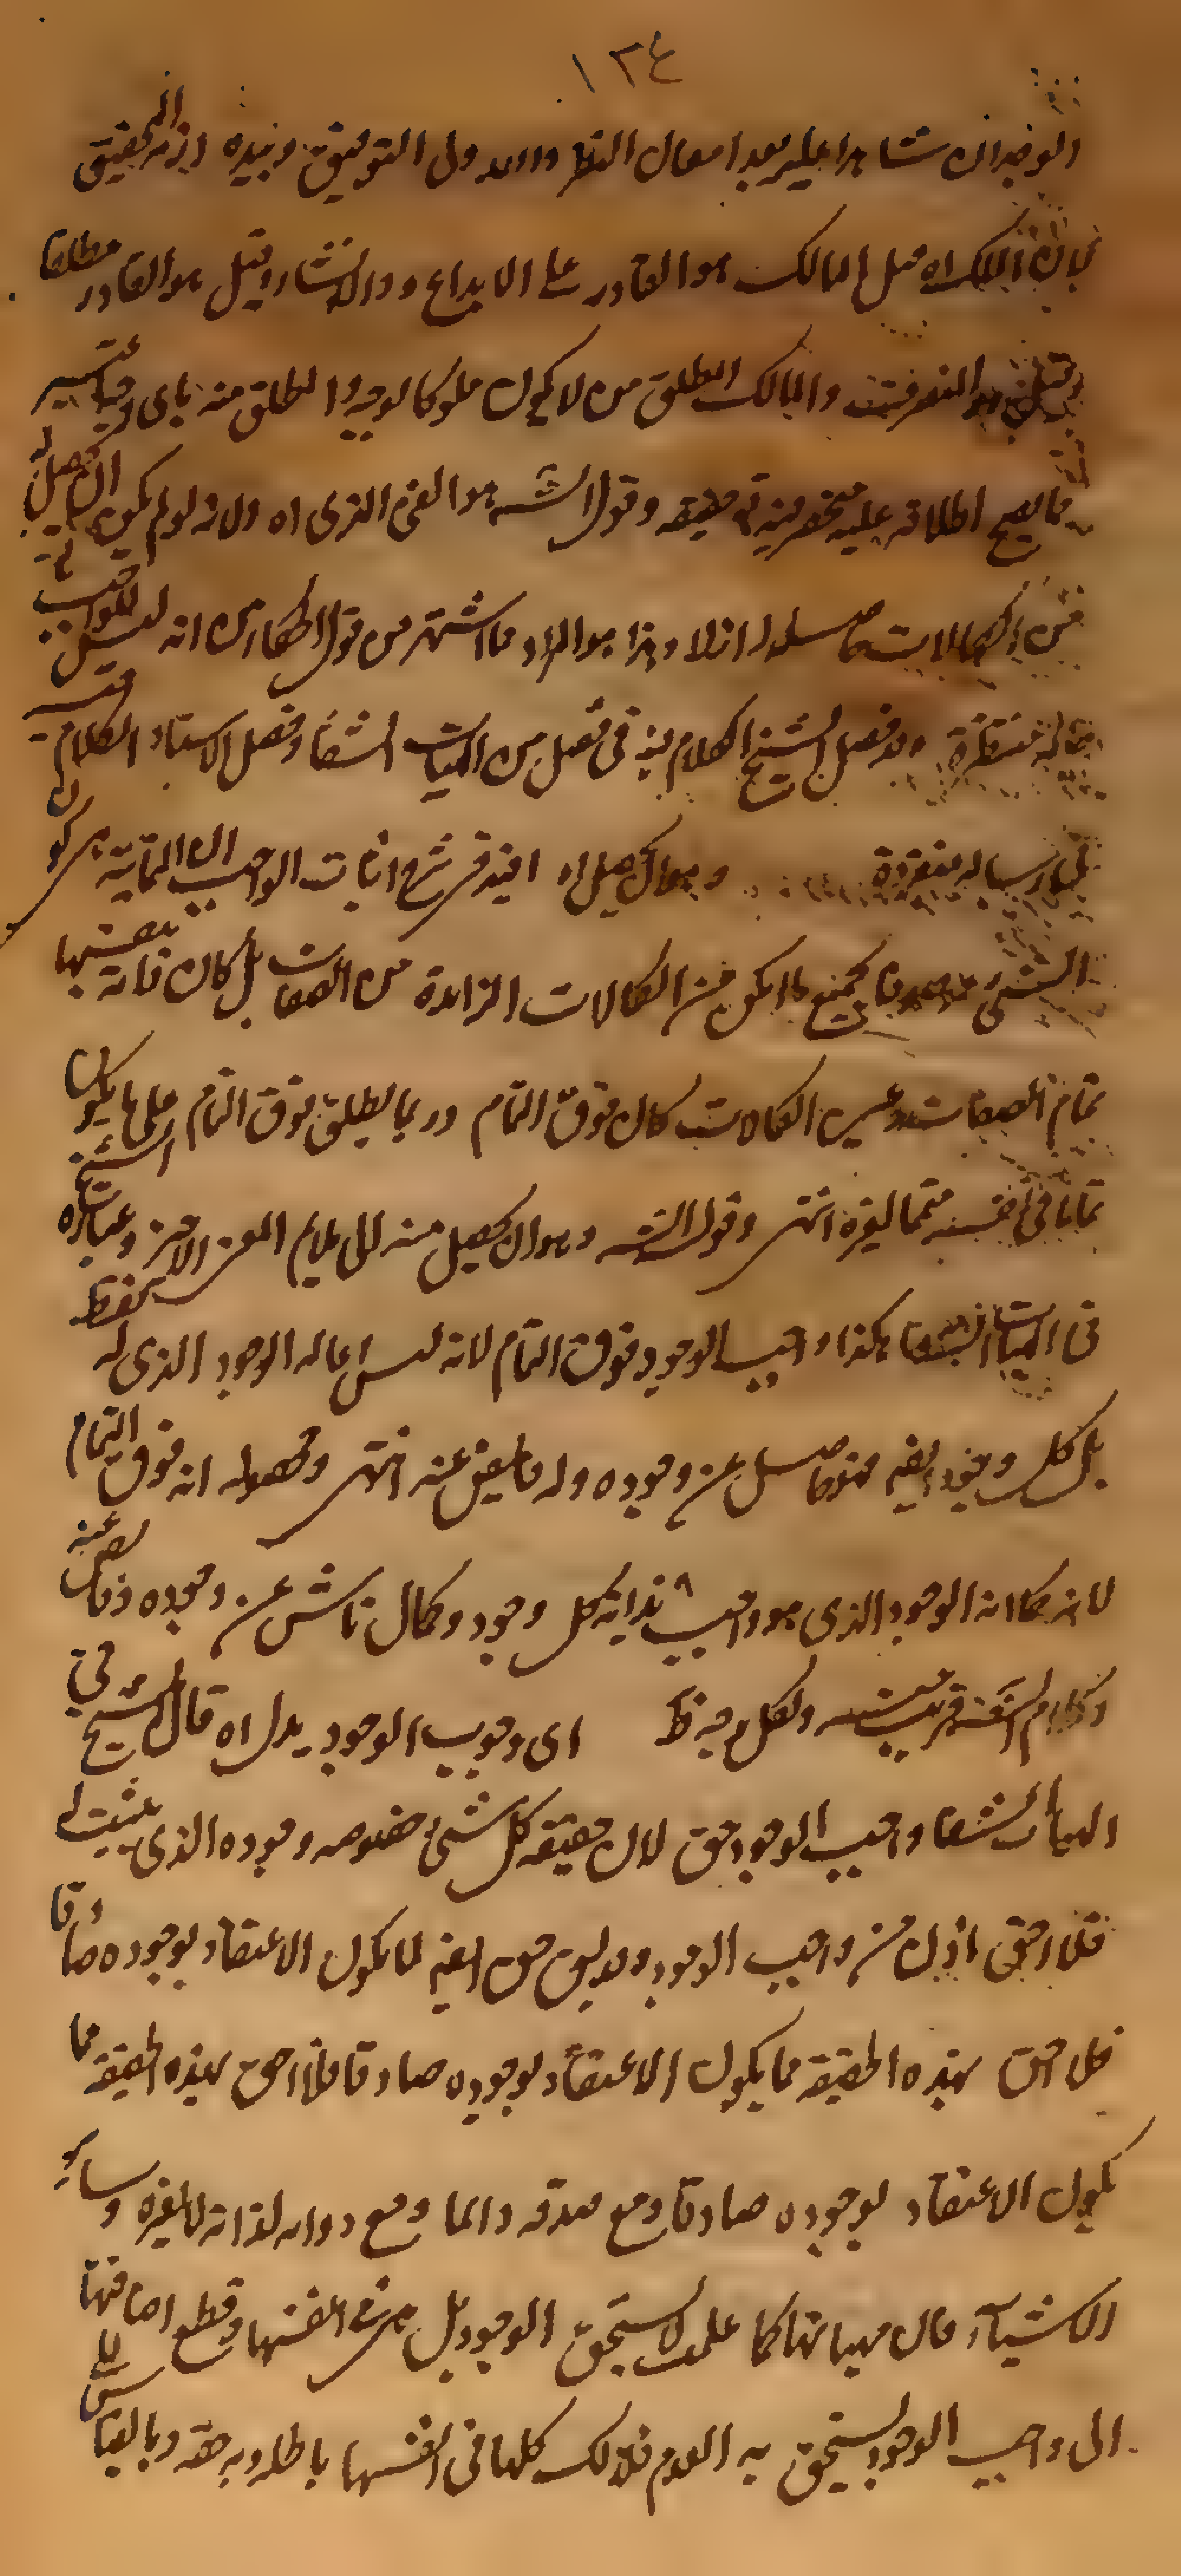 ١٣٤
الوجدان شاهدا عليه بعد امعان النظر والله ولى التوفيق وبيده ازمة التحقيق
الملك اه قيل المالك هو القادر على الابداع والانشاء وقيل هو القادر مطلقا
وقيل هو المتصرف والمالك المطلق من لا يكون مملوكا لوجه والمطلق منه باى وجه يعتبر
مما يصح اطلاقه عليه حقيقة وقول الشه هو الغنى الذى اه ولانه لو لم يكن الحاصل له
من الكمالات حاصلا له ازلا وهذا هو المراد مما اشتهر من قول الحكماء من انه ليس للواجب تع
حالة منتظرة وقد فصل الشيخ الكلام فيه فى فصل من الهيات الشفاء وفصل الاستاد الكلام فيه
فى رسالة منفردة وهو ان يحصل اه افيد فى شرح اثبات الواجب ان التمامية هى كون
الشئ بجميع ما يمكن من الكمالات الزائدة من الصفات بل كان ذاته بعينها
تمام الصفات وعين الكمالات كان فوق التمام وربما يطلق فوق التمام على ما يكون
تماما فى نفسه متمما لغيره انتهى وقول الشه وهو ان يحصل منه لا يلايم المعنى الاخير وعبارة الشيخ
فى الهيات الشفا هكذا واجب الوجود فوق التمام لانه ليس انما له الوجود الذى له فقط
بل كل وجود ايضا فهو فاضل عن وجوده وله وفائض عنه انتهى ومحصوله انه فوق التمام
لانه كما انه الوجود الذى هو واجب بذاته كل وجود وكمال ناش عن وجوده وفائض عنه
وكلام الشه قريب منه ولكل وجه فظ اى وجوب الوجود يدل اه قال الشيخ فى
الهيات الشفا واجب الوجود حق لان حقيقة كل شئ خصوص وجوده الذى يثبت له
فلا احق اذن من واجب الوجود وقد يق حق ايضا لما يكون الاعتقاد بوجوده صادقا
فلا احق بهذه الحقيقة مما يكون الاعتقاد بوجوده صادقا فلا احق بهذه الحقيقة مما
يكون الاعتقاد بوجوده صادقا ومع صدقه دائما ومع دوامه لذاته لا لغيره وساير
الاشياء فان مهياتها كما علمت لا تستحق الوجود بل هى فى انفسها وقطع اضافتها
الى واجب الوجود تستحق به العدم فلذلك كلها فى انفسها باطلة وبه حقة وبالقياس